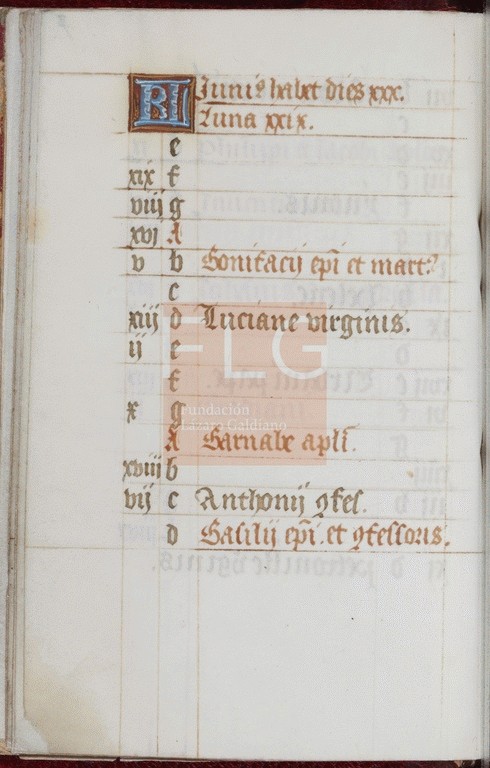 KL Juniꝰ habet dies xxx.
Luna xxix.
e
xix f
viij g
xvj A
v b Bonifacij ep̄i et mart?
c
xiij d Luciane virginis.
ij e
f
x g
A Barnabe apl̄i.
xviij b
vij c Anthonij ꝯfes.
d Basilij ep̄i. et ꝯfessoris.
FLG
Fundación
Lázaro Galdiano